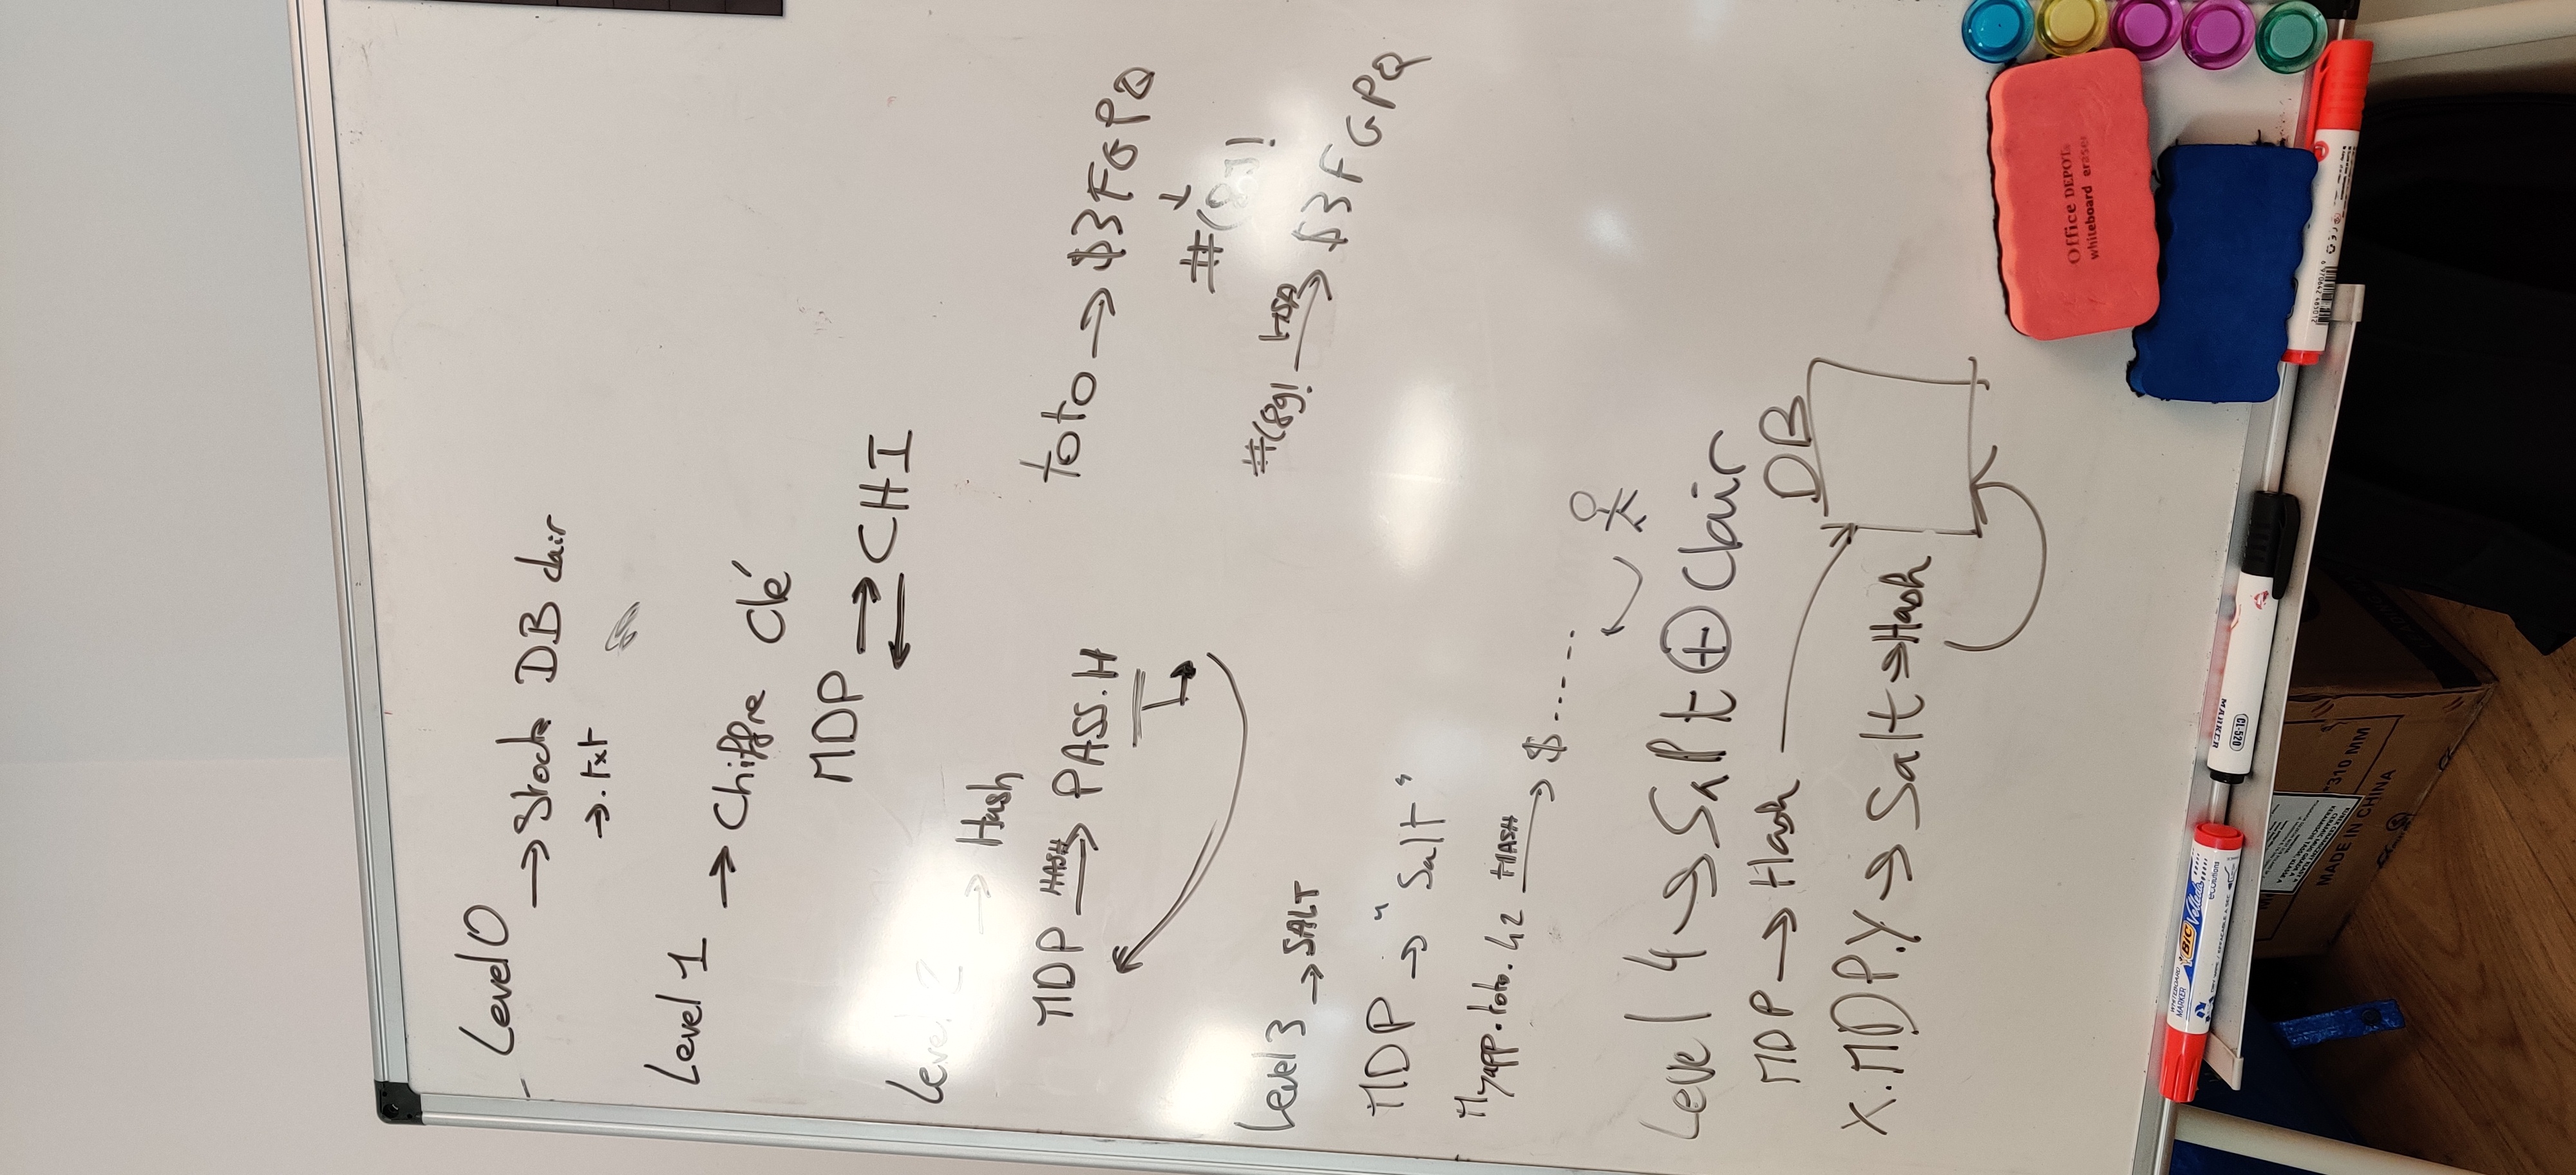 Level 0
→ Stock DB clair
→ .txt
Level 1
→ Chiffre Clé
MDP ⇄ CHI
Level 2
→ Hash
MDP HASH → PASS.H
toto → $3FGPQ
↓
#(89!
#(89! HSA → $3FGPQ
Level 3 → SALT
MDP → "Salt"
Myapp.toto.42 HASH → $......
Level 4 → Salt ⊕ Clair
MDP → Hash
DB
X.MDP.Y → Salt → Hash
Office DEPOT
whiteboard eraser
WHITEBOARD
MARKER
BIC Velleda
ecolutions
DRY WIPE / EFFAÇABLE A SEC
MARKER
CL-520
310 MM
MADE IN CHINA